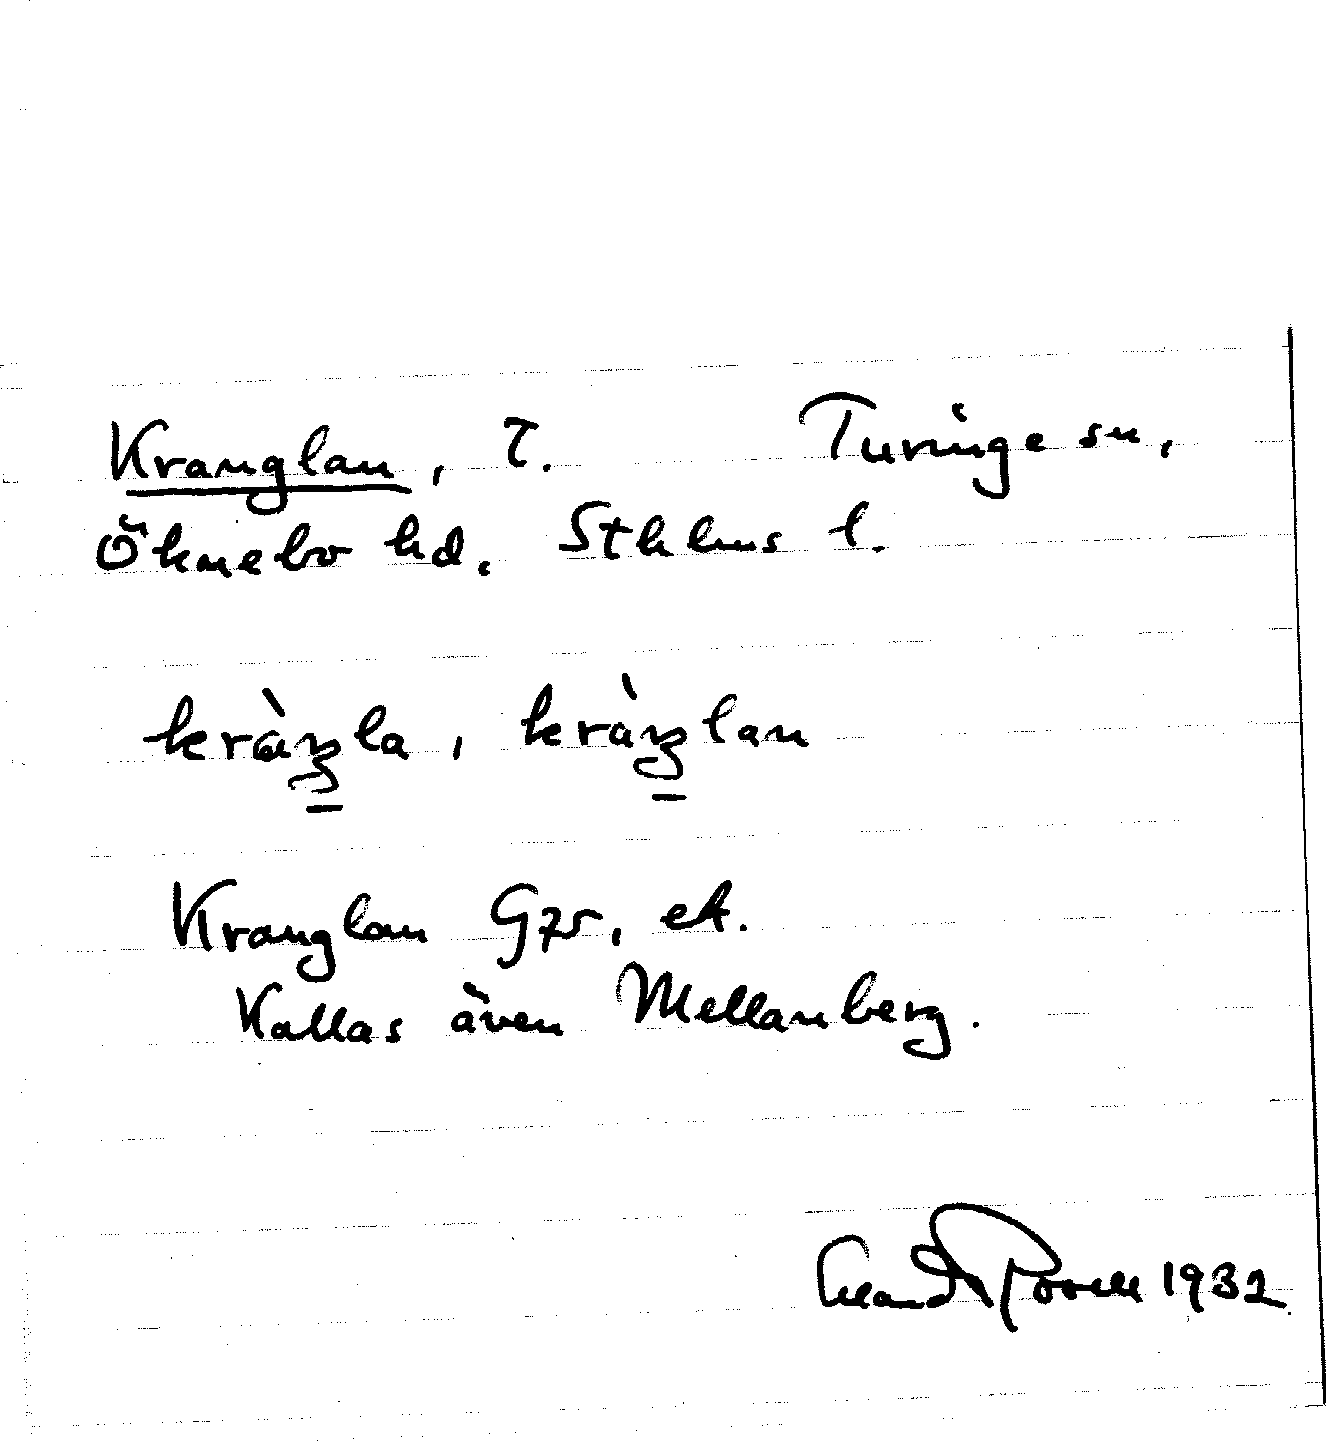 Kranglan, T. Turinge sn,
Öknebo hd. Sthlms l.
kràŋla, kràŋlan
Kranglan G75, ek.
Kallas även Mellanberg.
1932